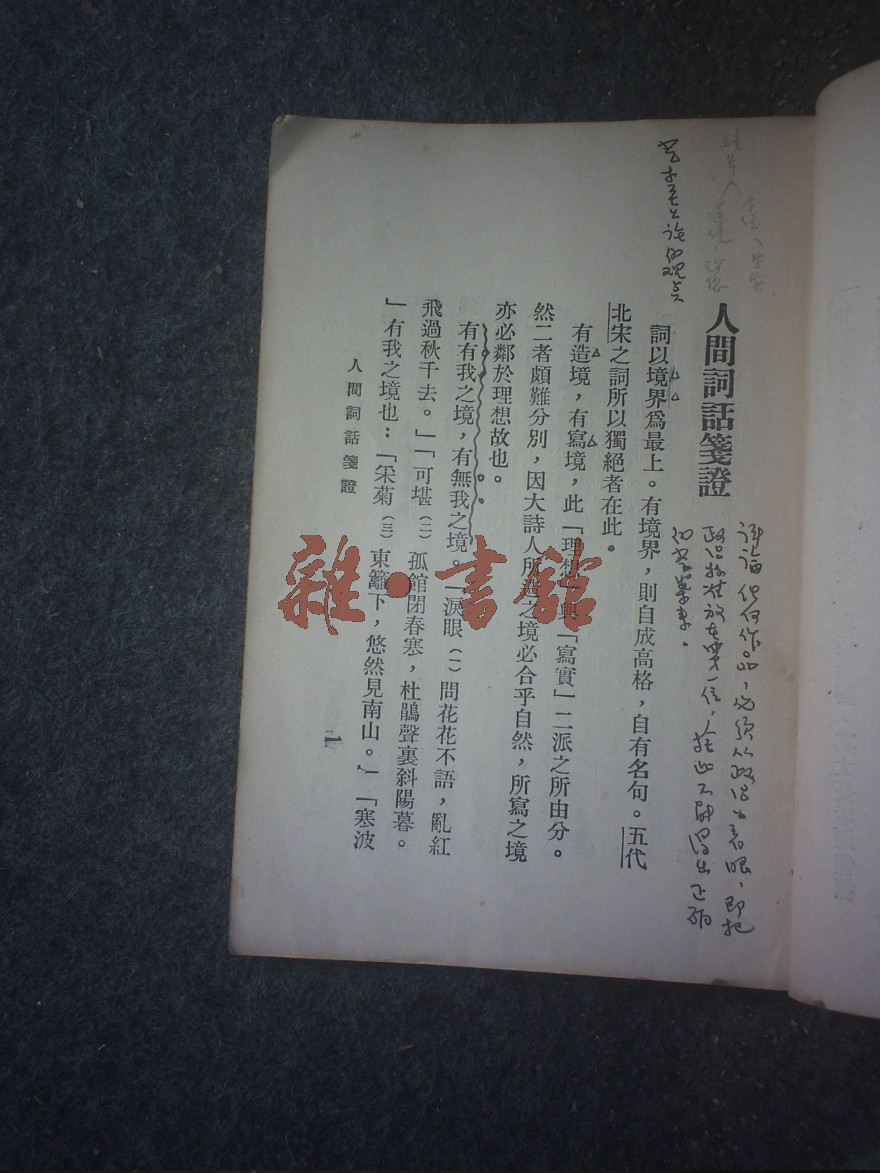 人間詞話箋證
詞以境界爲最上。有境界，則自成高格，自有名句。五代
北宋之詞所以獨絕者在此。
有造境，有寫境，此「理想」與「寫實」二派之所由分。
然二者頗難分別，因大詩人所造之境必合乎自然，所寫之境
亦必鄰於理想故也。
有有我之境，有無我之境。「淚眼（一）問花花不語，亂紅
飛過秋千去。」「可堪（二）孤館閉春寒，杜鵑聲裏斜陽暮。
」有我之境也：「采菊（三）東籬下，悠然見南山。」「寒波
人間詞話箋證
1
评论任何作品，必须从政治上着眼，即把
政治标准放在第一位，在此才能得出正确
的
雜·書館